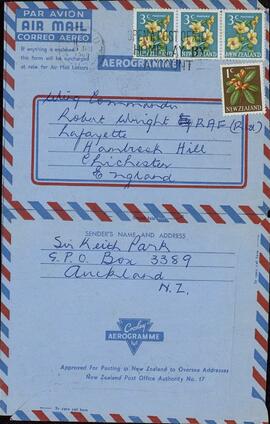 PAR AVION
AIR MAIL
CORREO AEREO
If anything is enclosed
this form will be surcharged
at rate for Air Mail Letters
AEROGRAMME
3c
3c
3c
1c
NEW ZEALAND
Wing Commander
Robert Wright RAF
Lafayette
Hambrook Hill
Chichester
England
SENDER'S NAME AND ADDRESS
Sir Keith Park
G.P.O. Box 3389
Auckland
N.Z.
Croxley
AEROGRAMME
Approved for Posting in New Zealand to Overseas Addresses
New Zealand Post Office Authority No. 17
To open cut here